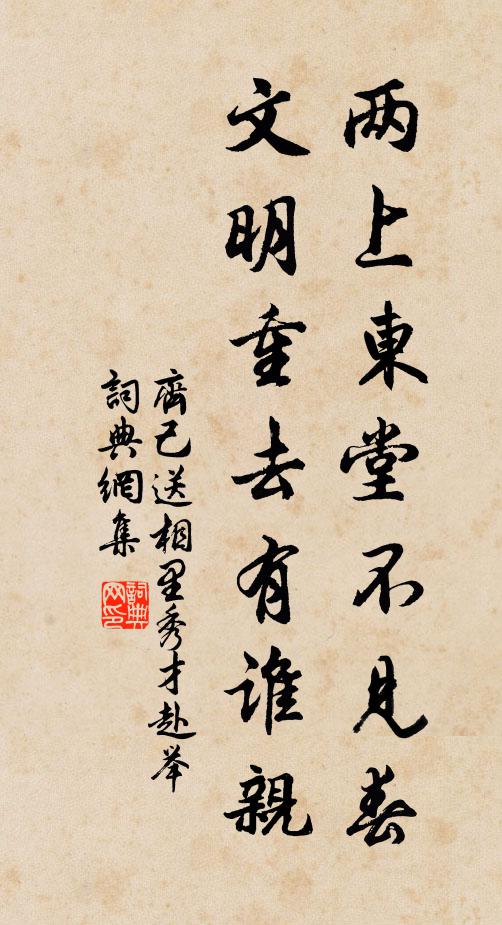 两上東堂不見春
文明重去有谁親
齊己送相里秀才赴举
詞典網集
詞典
网印